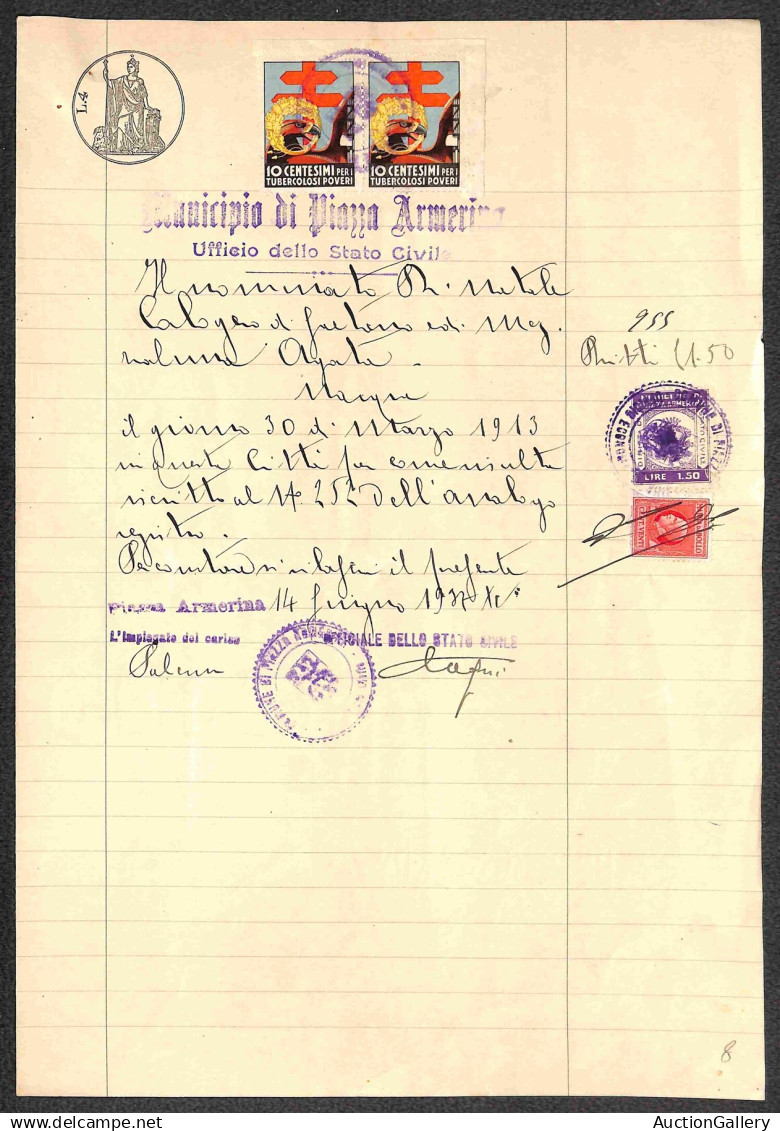 L.4
10 CENTESIMI PER I
TUBERCOLOSI POVERI
10 CENTESIMI PER I
TUBERCOLOSI POVERI
Municipio di Piazza Armerina
Ufficio dello Stato Civile
Il nominato Natale
Calogero di Gaetano e di
Agata
955
1.50
Nacque
il giorno 30 di Marzo 1913
in questa Città come risulta
iscritto al N 252 dell'analogo
registro.
LIRE 1.50
Per constare si rilascia il presente
Piazza Armerina 14 Giugno 193
L'Impiegato del carico
UFFICIALE DELLO STATO CIVILE
COMUNE DI PIAZZA ARMERINA
8
AuctionGallery